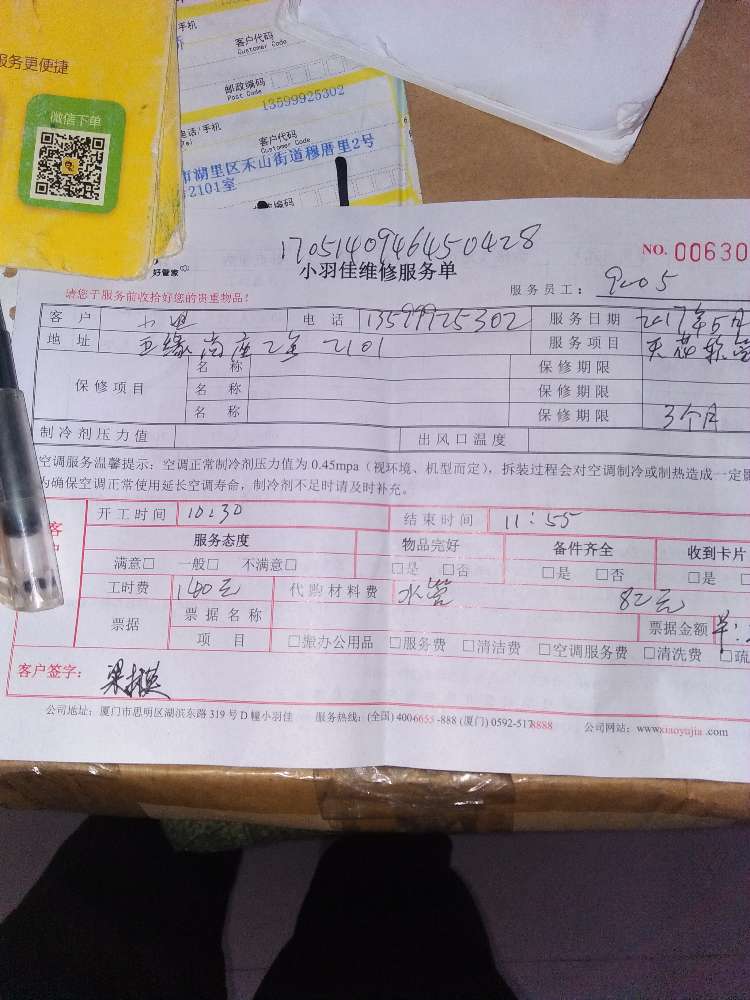 服务更便捷
微信下单
手机
客户代码
Customer Code
邮政编码
Post Code
13599925302
电话/手机
客户代码
Customer Code
市湖里区禾山街道穆厝里2号
2101室
编码
好管家
170514094645 0428
小羽佳维修服务单
NO. 00630
请您于服务前收拾好您的贵重物品!
服务员工: 9205
客 户 电 话 13599925302 服务日期 2017年5月
地 址 亚缘尚座2全 2101 服务项目
保修项目
名 称 保修期限
名 称 保修期限
名 称 保修期限 3个月
制冷剂压力值 出风口温度
空调服务温馨提示: 空调正常制冷剂压力值为 0.45mpa (视环境、机型而定), 拆装过程会对空调制冷或制热造成一定影
为确保空调正常使用延长空调寿命, 制冷剂不足时请及时补充。
客
开工时间 10:30 结束时间 11:55
服务态度 物品完好 备件齐全 收到卡片
满意□ 一般□ 不满意□ □是 □否 □是 □否 □是
工时费 140元 代购材料费 水管 82元
票据 票据名称 票据金额
项 目 □搬办公用品 □服务费 □清洁费 □空调服务费 □清洗费 □疏
客户签字:
公司地址: 厦门市思明区湖滨东路 319 号 D 幢小羽佳 服务热线: (全国) 4006655-888 (厦门) 0592-5178888 公司网站: www.xiaoyujia.com